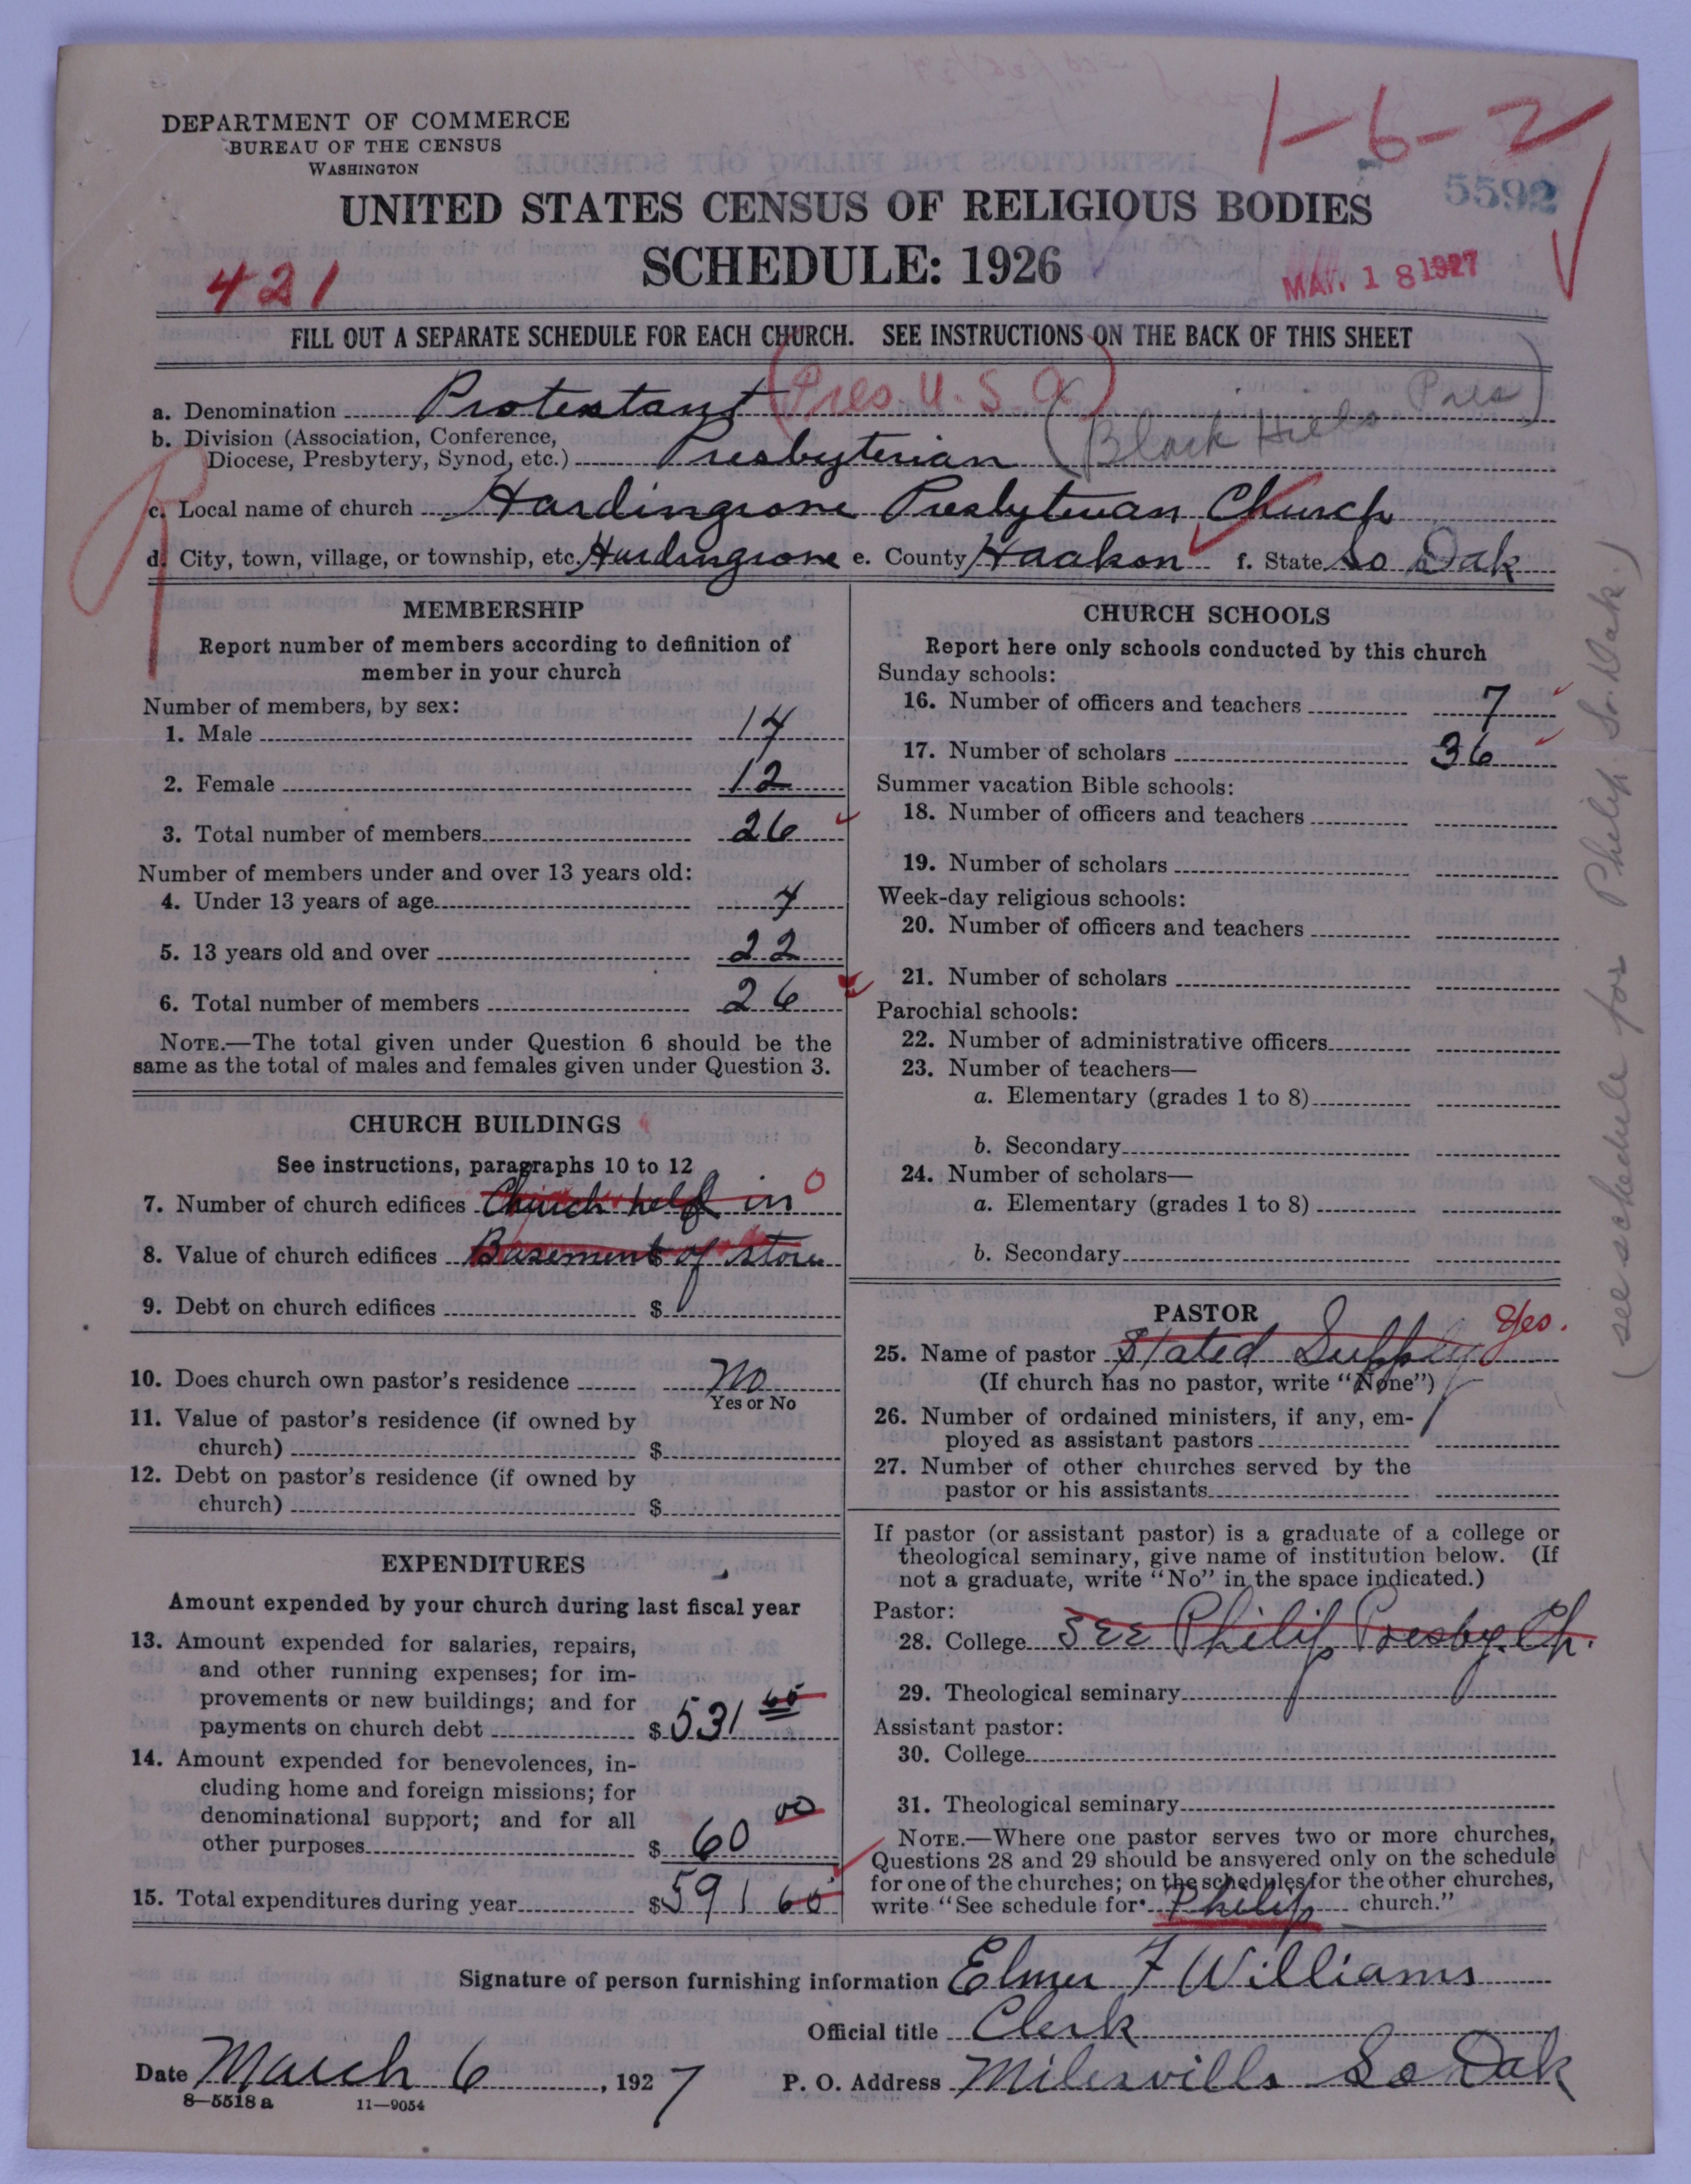 1-6-2
DEPARTMENT OF COMMERCE
BUREAU OF THE CENSUS
WASHINGTON
5592
UNITED STATES CENSUS OF RELIGIOUS BODIES
SCHEDULE: 1926
421
MAR 18 1927
FILL OUT A SEPARATE SCHEDULE FOR EACH CHURCH. SEE INSTRUCTIONS ON THE BACK OF THIS SHEET
a. Denomination Protestant (Pres. U.S.A)
b. Division (Association, Conference,
Diocese, Presbytery, Synod, etc.) Presbyterian (Black Hills Pres)
c. Local name of church Hardingrove Presbyterian Church
d. City, town, village, or township, etc. Hardingrove e. County Haakon f. State So Dak
MEMBERSHIP
Report number of members according to definition of
member in your church
Number of members, by sex:
1. Male 14
2. Female 12
3. Total number of members 26
Number of members under and over 13 years old:
4. Under 13 years of age 4
5. 13 years old and over 22
6. Total number of members 26
NOTE.—The total given under Question 6 should be the
same as the total of males and females given under Question 3.
CHURCH BUILDINGS
See instructions, paragraphs 10 to 12
7. Number of church edifices Church held in 0
8. Value of church edifices Basement of store
9. Debt on church edifices $
10. Does church own pastor's residence No
Yes or No
11. Value of pastor's residence (if owned by
church) $
12. Debt on pastor's residence (if owned by
church) $
EXPENDITURES
Amount expended by your church during last fiscal year
13. Amount expended for salaries, repairs,
and other running expenses; for im-
provements or new buildings; and for
payments on church debt $ 531 65
14. Amount expended for benevolences, in-
cluding home and foreign missions; for
denominational support; and for all
other purposes $ 60 00
15. Total expenditures during year $ 591 65
CHURCH SCHOOLS
Report here only schools conducted by this church
Sunday schools:
16. Number of officers and teachers 7
17. Number of scholars 36
Summer vacation Bible schools:
18. Number of officers and teachers
19. Number of scholars
Week-day religious schools:
20. Number of officers and teachers
21. Number of scholars
Parochial schools:
22. Number of administrative officers
23. Number of teachers—
a. Elementary (grades 1 to 8)
b. Secondary
24. Number of scholars—
a. Elementary (grades 1 to 8)
b. Secondary
PASTOR
25. Name of pastor Stated Supply Yes.
(If church has no pastor, write "None")
26. Number of ordained ministers, if any, em-
ployed as assistant pastors
27. Number of other churches served by the
pastor or his assistants
If pastor (or assistant pastor) is a graduate of a college or
theological seminary, give name of institution below. (If
not a graduate, write "No" in the space indicated.)
Pastor:
28. College See Philip Presby. Ch.
29. Theological seminary
Assistant pastor:
30. College
31. Theological seminary
NOTE.—Where one pastor serves two or more churches,
Questions 28 and 29 should be answered only on the schedule
for one of the churches; on the schedules for the other churches,
write "See schedule for Philip church."
(see schedule for Philip So. Dak.)
Signature of person furnishing information Elmer F Williams
Official title Clerk
Date March 6, 1927 P. O. Address Milesville So Dak
8—5518 a 11—9054